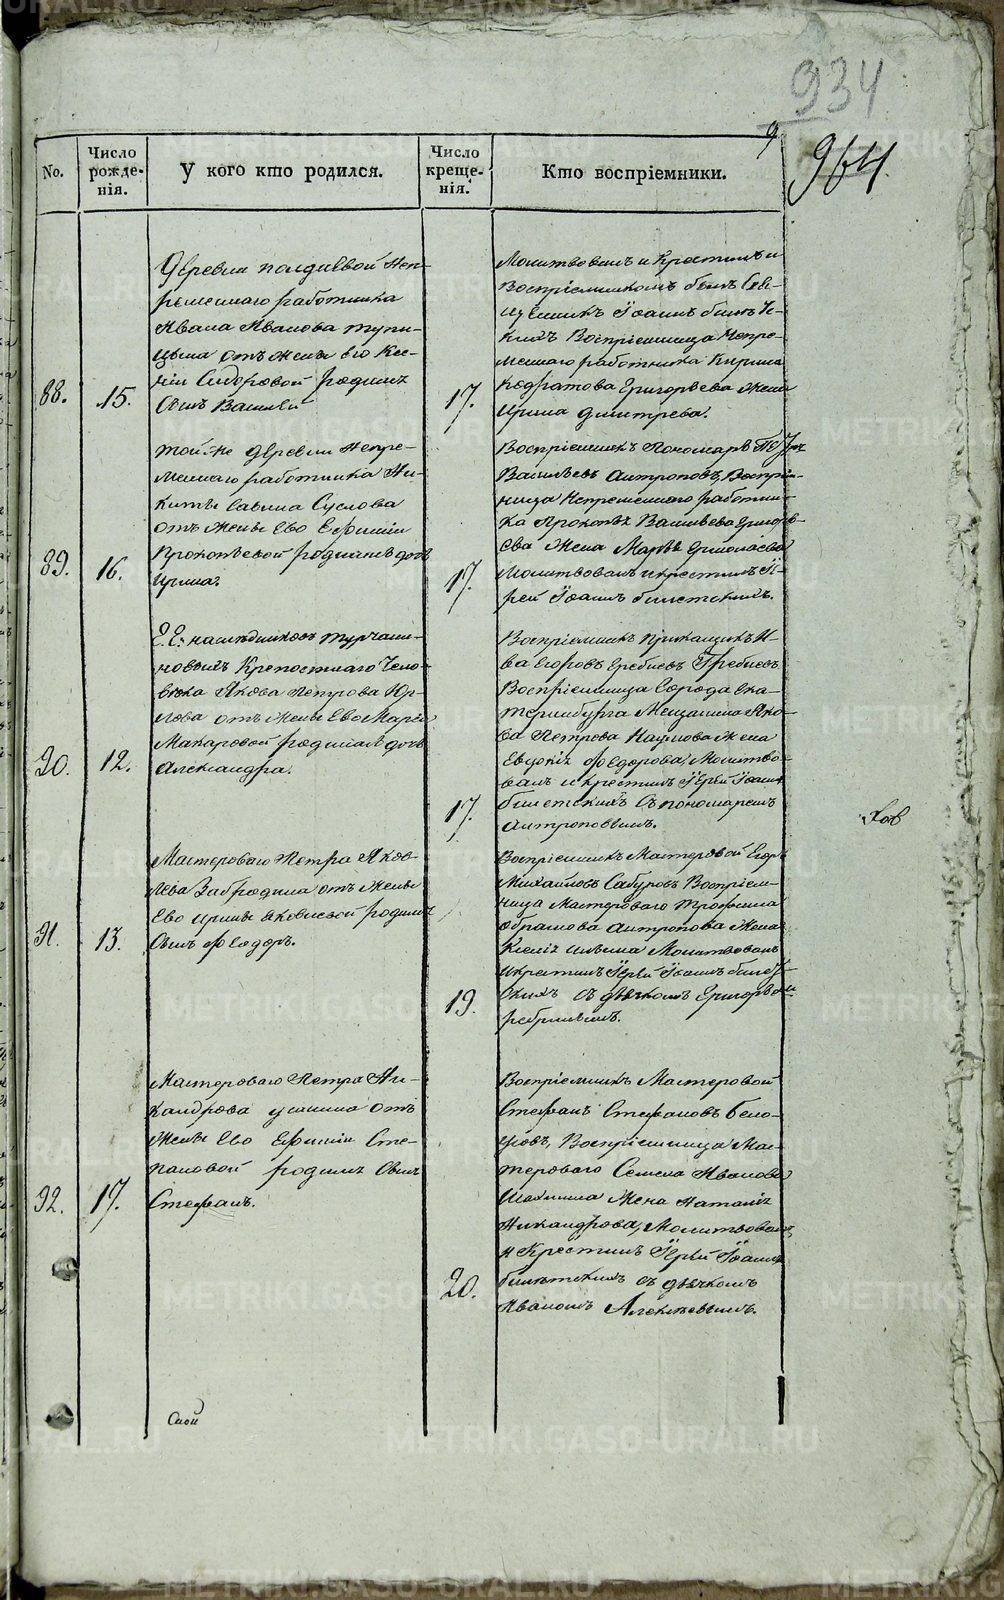 934
964.
No.
Число рожденія.
У кого кто родился.
Число крещенія.
Кто воспріемники.
88.
15.
Деревни полдневой Неп-
ременнаго работника
Ивана Иванова тупи-
цына отъ жены Его Ксе-
ніи Сидоровой родился
Сынъ Василей
17.
Молитвовалъ и Крестилъ и
Воспріемникомъ былъ Свя-
щенникъ Іоаннъ
Воспріемница Непре-
меннаго работника Кирила
Кодратова Григорьева жена
Ирина дмитрева.
89.
16.
той же деревни Непре-
меннаго работника Ни-
киты Савина Суслова
отъ жены Ево Ефиміи
Прокопьевой родилась дочь
Ирина.
17.
Воспріемникъ Пономарь Петръ
Васильевъ Антроповъ, Воспріем-
ница Непременнаго работни-
ка Прокопья Васильева Григорь-
ева жена Марья Ермолаева
Молитвовалъ и крестилъ Іе-
рей Іоаннъ
90.
12.
Е. Е. наследниковъ турчани-
новыхъ Крепостнаго Чело-
века Якова Петрова Юр-
лова отъ жены Ево Марьи
Макаровой родилась дочь
Александра.
17.
Воспріемникъ прикащикъ И-
ва Егоровъ Гребневъ
Воспріемница Города Ека-
теринбурга Мещанина Яко-
ва Петрова Наумова жена
Евдокія Федорова, Молитво-
валъ и крестилъ Іерей Іоаннъ
съ пономаремъ
Антроповымъ.
91.
13.
Мастероваго Петра Яков-
лева Забродина отъ жены
Ево Ирины Яковлевой родился
Сынъ Федоръ.
19.
Воспріемникъ Мастеровой Егоръ
Михайловъ Сабуровъ Воспріем-
ница Мастероваго Трофима
Абрамова Антропова жена
Ксенія Ильина Молитвовалъ
и крестилъ Іерей Іоаннъ
съ дьячкомъ Григорьем
92.
17.
Мастероваго Петра Ни-
кандрова отъ
жены Ево Ефиміи Сте-
пановой родился Сынъ
Стефанъ.
20.
Воспріемникъ Мастеровой
Стефанъ Стефановъ
Воспріемница Мас-
тероваго Семена Иванова
жена Наталія
Никандрова, Молитвовалъ,
и Крестилъ Іерей Іоаннъ
съ дьячкомъ
Иваномъ Алексѣевымъ.
ков
METRIKI.GASO-URAL.RU